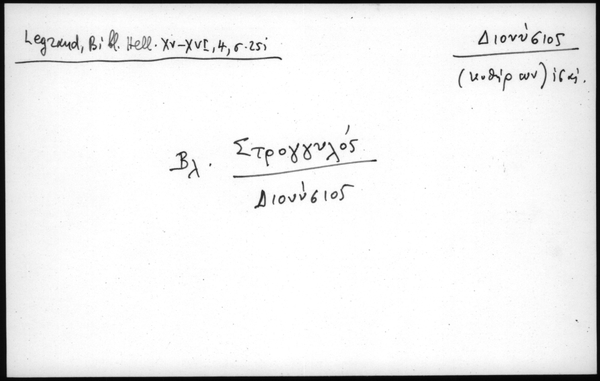 Legrand, Bibl. Hell. XV-XVI, 4, σ. 251
Διονύσιος
(Κυθήρων)
Βλ. Στρογγυλός
Διονύσιος